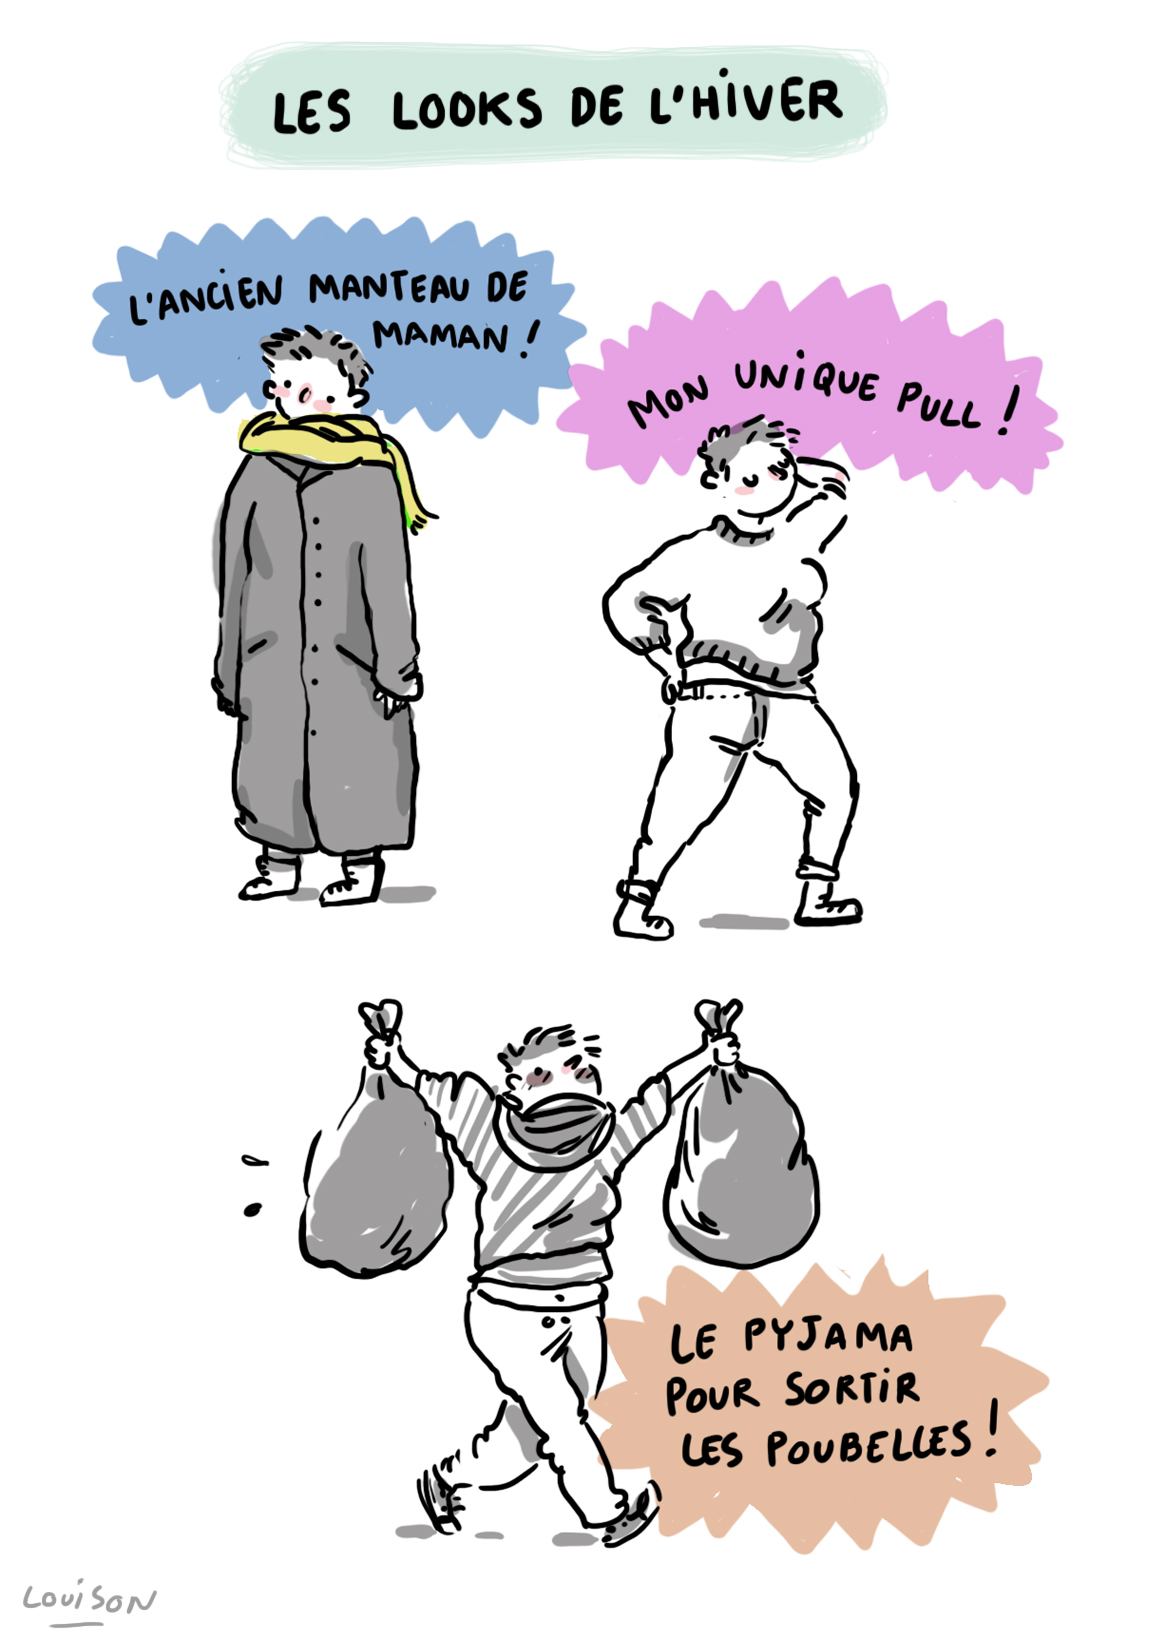 LES LOOKS DE L'HIVER
L'ANCIEN MANTEAU DE
MAMAN !
MON UNIQUE PULL !
LE PYJAMA
POUR SORTIR
LES POUBELLES !
LOUISON